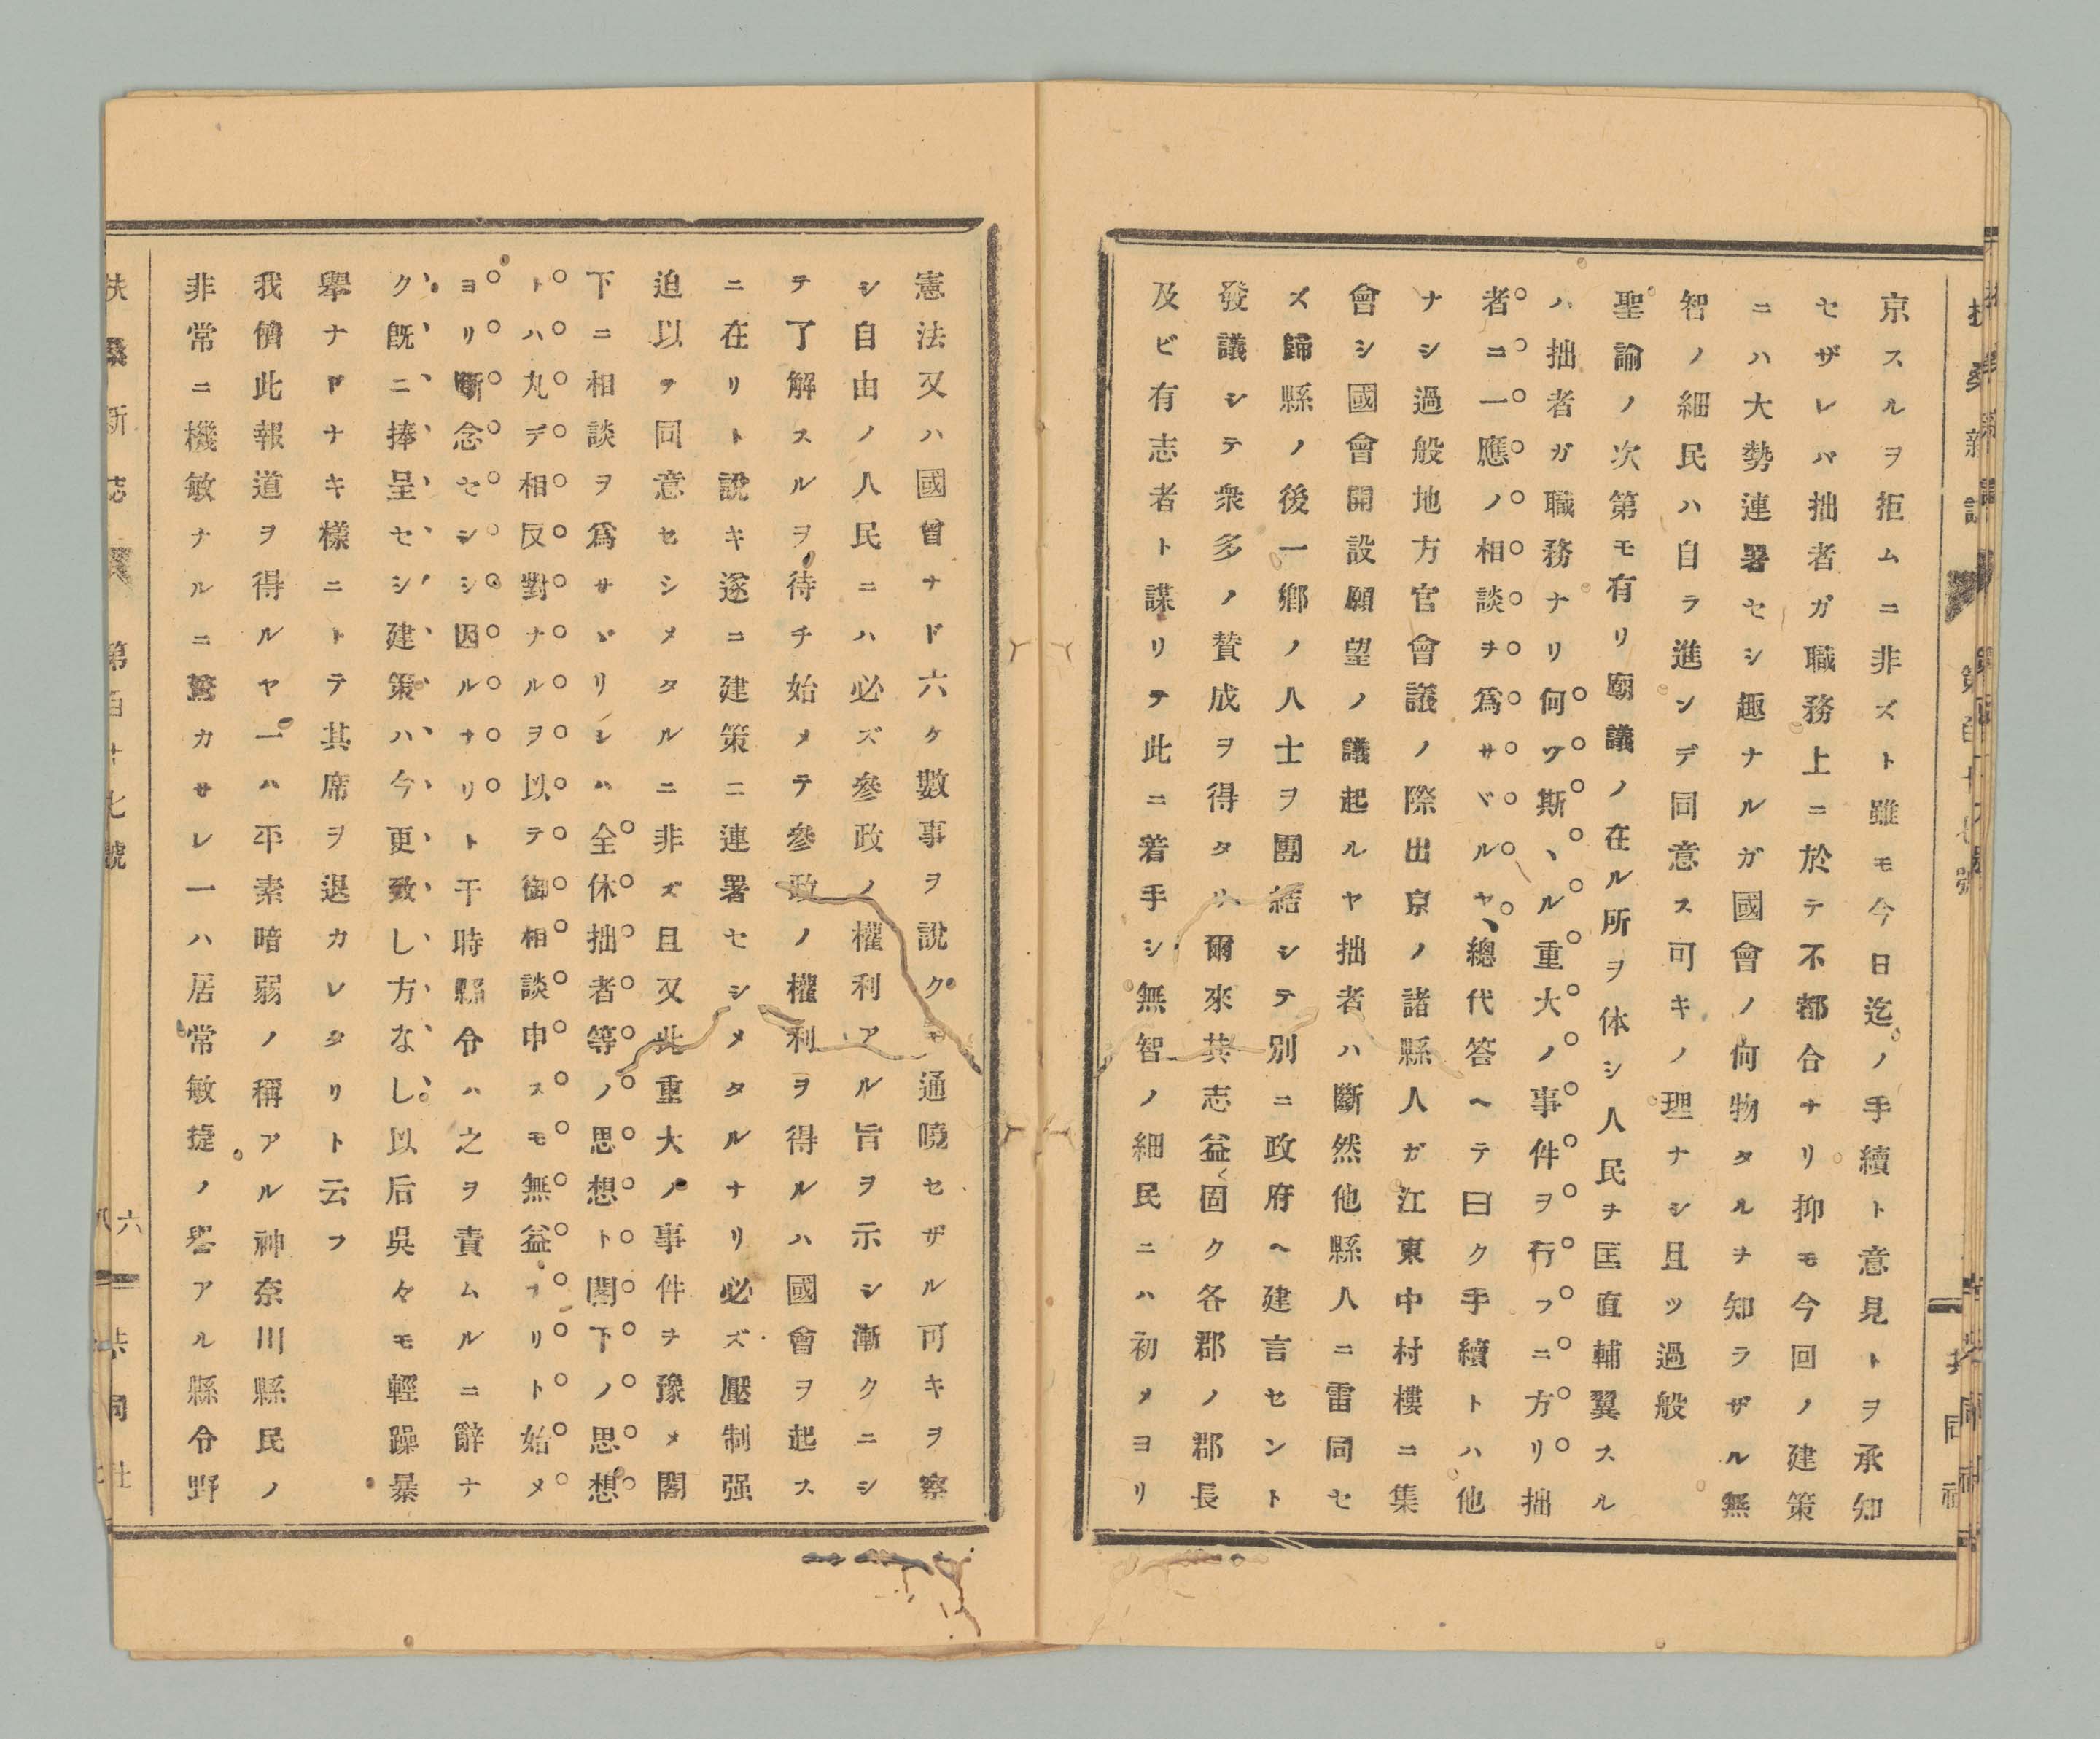 京スルヲ拒ムニ非ズト雖モ今日迄ノ手續ト意見トヲ承知
セザレバ拙者ガ職務上ニ於テ不都合ナリ抑モ今回ノ建策
ニハ大勢連署セシ趣ナルガ國會ノ何物タルヲ知ラザル無
智ノ細民ハ自ラ進ンデ同意ス可キノ理ナシ且ツ過般
聖諭ノ次第モ有リ廟議ノ在ル所ヲ体シ人民ヲ匡直輔翼スル
ハ拙者ガ職務ナリ何ゾ斯ヽル重大ノ事件ヲ行フニ方リ拙
者ニ一應ノ相談ヲ爲サヾルヤ、總代答ヘテ曰ク手續トハ他
ナシ過般地方官會議ノ際出京ノ諸縣人ガ江東中村樓ニ集
會シ國會開設願望ノ議起ルヤ拙者ハ斷然他縣人ニ雷同セ
ズ歸縣ノ後一鄉ノ人士ヲ團結シテ別ニ政府ヘ建言セント
發議シテ衆多ノ賛成ヲ得タリ爾來其志益固ク各郡ノ郡長
及ビ有志者ト謀リテ此ニ着手シ無智ノ細民ニハ初メヨリ
憲法又ハ國會ナド六ケ數事ヲ說クモ通曉セザル可キヲ察
シ自由ノ人民ニハ必ズ參政ノ權利アル旨ヲ示シ漸クニシ
テ了解スルヲ待チ始メテ參政ノ權利ヲ得ルハ國會ヲ起ス
ニ在リト說キ遂ニ建策ニ連署セシメタルナリ必ズ壓制强
迫以テ同意セシメタルニ非ズ且又此重大ノ事件ヲ豫メ閣
下ニ相談ヲ爲サヾリシハ全休拙者等ノ思想ト閣下ノ思想
トハ丸デ相反對ナルヲ以テ御相談申スモ無益ナリト始メ
ヨリ斷念セシシ因ルナリト干時縣令ハ之ヲ責ムルニ辭ナ
ク既ニ捧呈セシ建策ハ今更致し方なし以后吳々モ輕躁暴
擧ナドナキ樣ニトテ其席ヲ退カレタリト云フ
我儕此報道ヲ得ルヤ一ハ平素暗弱ノ稱アル神奈川縣民ノ
非常ニ機敏ナルニ驚カサレ一ハ居常敏捷ノ譽アル縣令野
扶桑新誌 第百廿七號 六 共同社